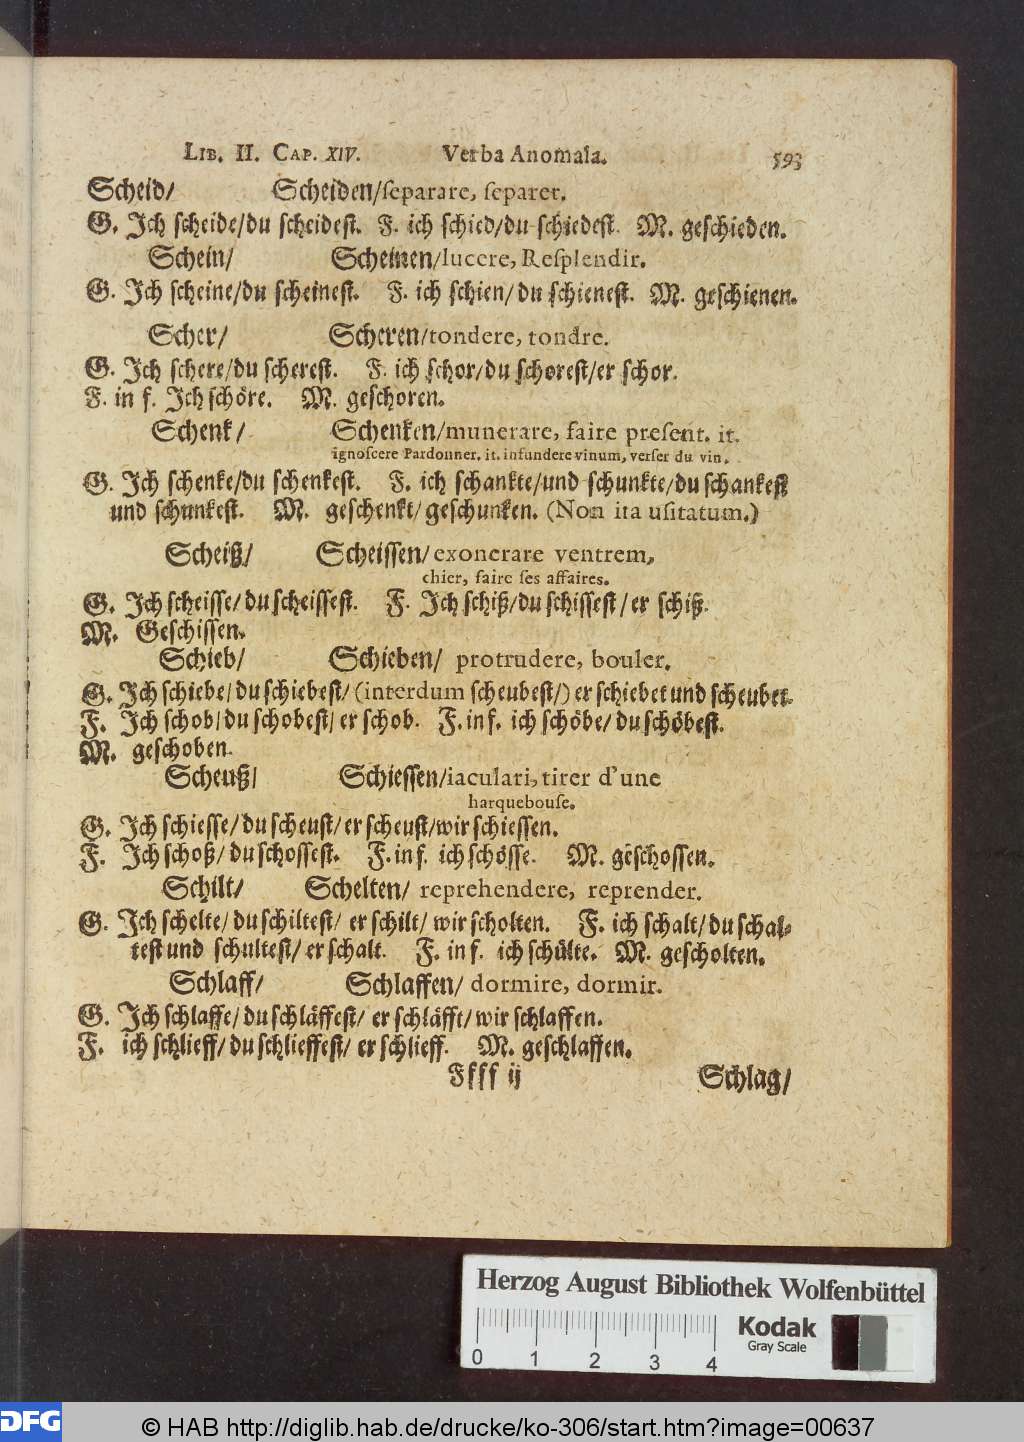 LIB. II. CAP. XIV. Verba Anomala. 593
Scheid/ Scheiden/separare, separer.
G. Ich scheide/du scheidest. F. ich schied/du schiedest. M. geschieden.
Schein/ Scheinen/lucere, Resplendir.
G. Ich scheine/du scheinest. F. ich schien/du schienest. M. geschienen.
Scher/ Scheren/tondere, tondre.
G. Ich schere/du scherest. F. ich schor/du schorest/er schor.
F. in f. Ich schöre. M. geschoren.
Schenk/ Schenken/munerare, faire present. it.
ignoscere Pardonner. it. infundere vinum, verser du vin.
G. Ich schenke/du schenkest. F. ich schankte/und schunkte/du schankest
und schunkest. M. geschenkt/geschunken. (Non ita usitatum.)
Scheiß/ Scheissen/exonerare ventrem,
chier, faire ses affaires.
G. Ich scheisse/du scheissest. F. Ich schiß/du schissest/er schiß.
M. Geschissen.
Schieb/ Schieben/ protrudere, bouler.
G. Ich schiebe/du schiebest/(interdum scheubest/) er schiebet und scheubet.
F. Ich schob/du schobest/er schob. F. in f. ich schöbe/du schöbest.
M. geschoben.
Scheuß/ Schiessen/iaculari, tirer d'une
harquebouse.
G. Ich schiesse/du scheust/er scheust/wir schiessen.
F. Ich schoß/du schossest. F. in f. ich schösse. M. geschossen.
Schilt/ Schelten/ reprehendere, reprender.
G. Ich schelte/du schiltest/ er schilt/ wir scholten. F. ich schalt/du schal-
test und schultest/er schalt. F. in f. ich schülte. M. gescholten.
Schlaff/ Schlaffen/ dormire, dormir.
G. Ich schlaffe/du schläffest/ er schläfft/wir schlaffen.
F. ich schlieff/du schlieffest/ er schlieff. M. geschlaffen.
Ffff ij Schlag/
Herzog August Bibliothek Wolfenbüttel
0 1 2 3 4
Kodak
Gray Scale
DFG
© HAB http://diglib.hab.de/drucke/ko-306/start.htm?image=00637